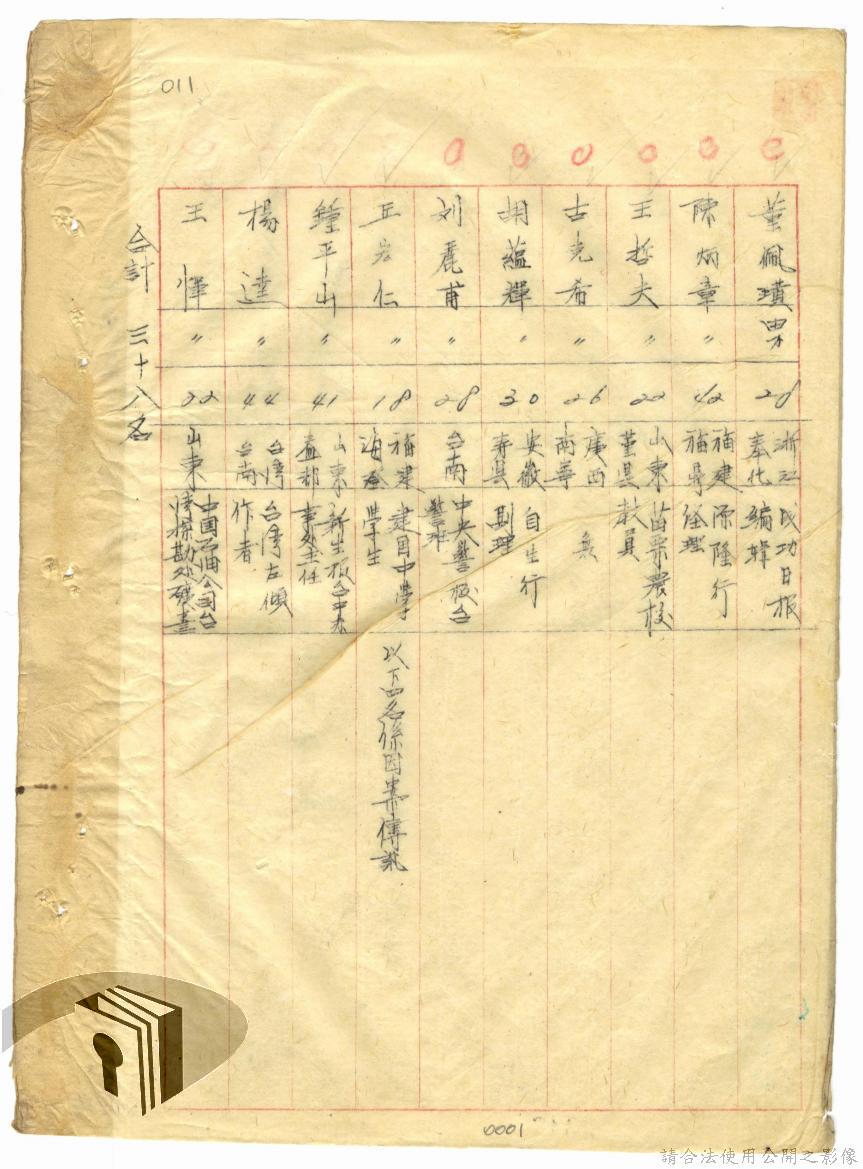 011
董佩璜 男 28 浙江奉化 成功日報編輯
陳炳章 〃 42 福建福鼎 源隆行經理
王哲夫 〃 22 山東莒县 苗栗農校教員
古光希 〃 26 廣西南寧 無
胡蘊輝 〃 30 安徽寿县 自生行副理
刘麗甫 〃 28 台南 中央警校台警班
丘岩仁 〃 18 福建海澄 建国中學學生 以下四名係因案傳訊
鍾平山 〃 41 山東益都 新生报台中办事处主任
楊逵 〃 44 台湾台南 台湾左傾作者
王惲 〃 22 山東 中国石油公司台湾探勘处
合計 三十八名
0001
請合法使用公開之影像